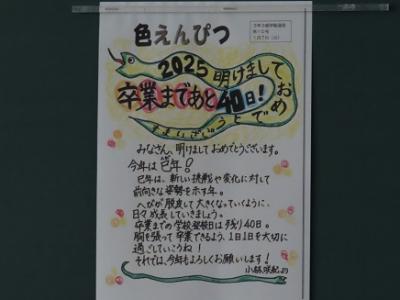 色えんぴつ
2025 明けまして
おめでとう
ございます
卒業まであと40日!
みなさん、明けましておめでとうございます。
今年は巳年!
巳年は、新しい挑戦や変化に対して
前向きな姿勢を示す年。
へびが脱皮して大きくなっていくように、
日々成長していきましょう。
卒業までの学校登校日は残り40日。
胸を張って卒業できるよう、1日1日を大切に
過ごしていこうね!
それでは、今年もよろしくお願いします!